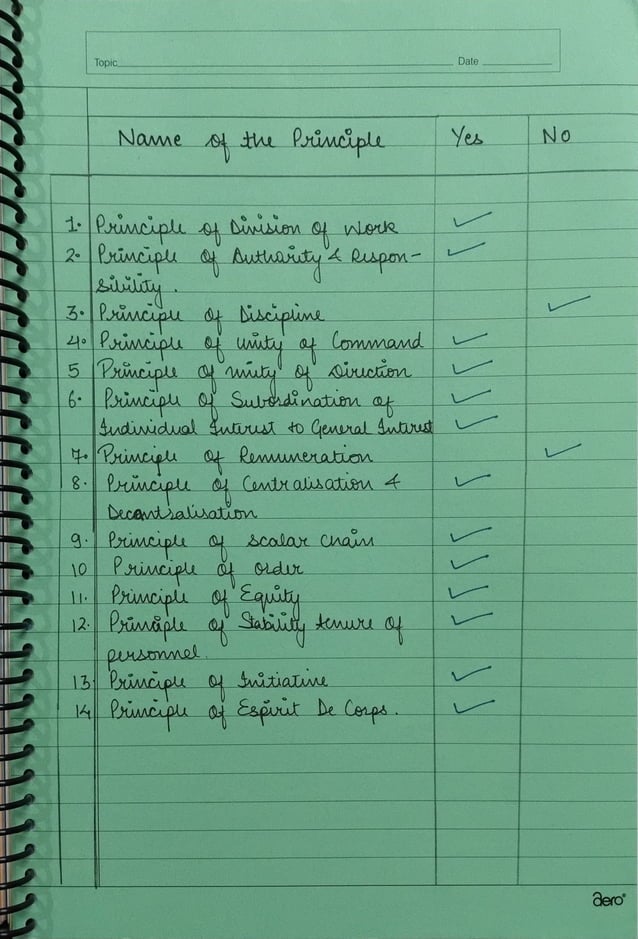 Topic Date
Name of the Principle Yes No
1. Principle of Division of Work ✓
2. Principle of Authority & Respon- ✓
sibility.
3. Principle of Discipline ✓
4. Principle of unity of Command ✓
5 Principle of unity of Direction ✓
6. Principle of Subordination of ✓
Individual Interest to General Interest ✓
7. Principle of Remuneration ✓
8. Principle of Centralisation & ✓
Decentralisation
9. Principle of scalar chain ✓
10 Principle of order ✓
11. Principle of Equity ✓
12. Principle of Stability tenure of ✓
personnel.
13 Principle of Initiative ✓
14 Principle of Espirit De Corps. ✓
aero